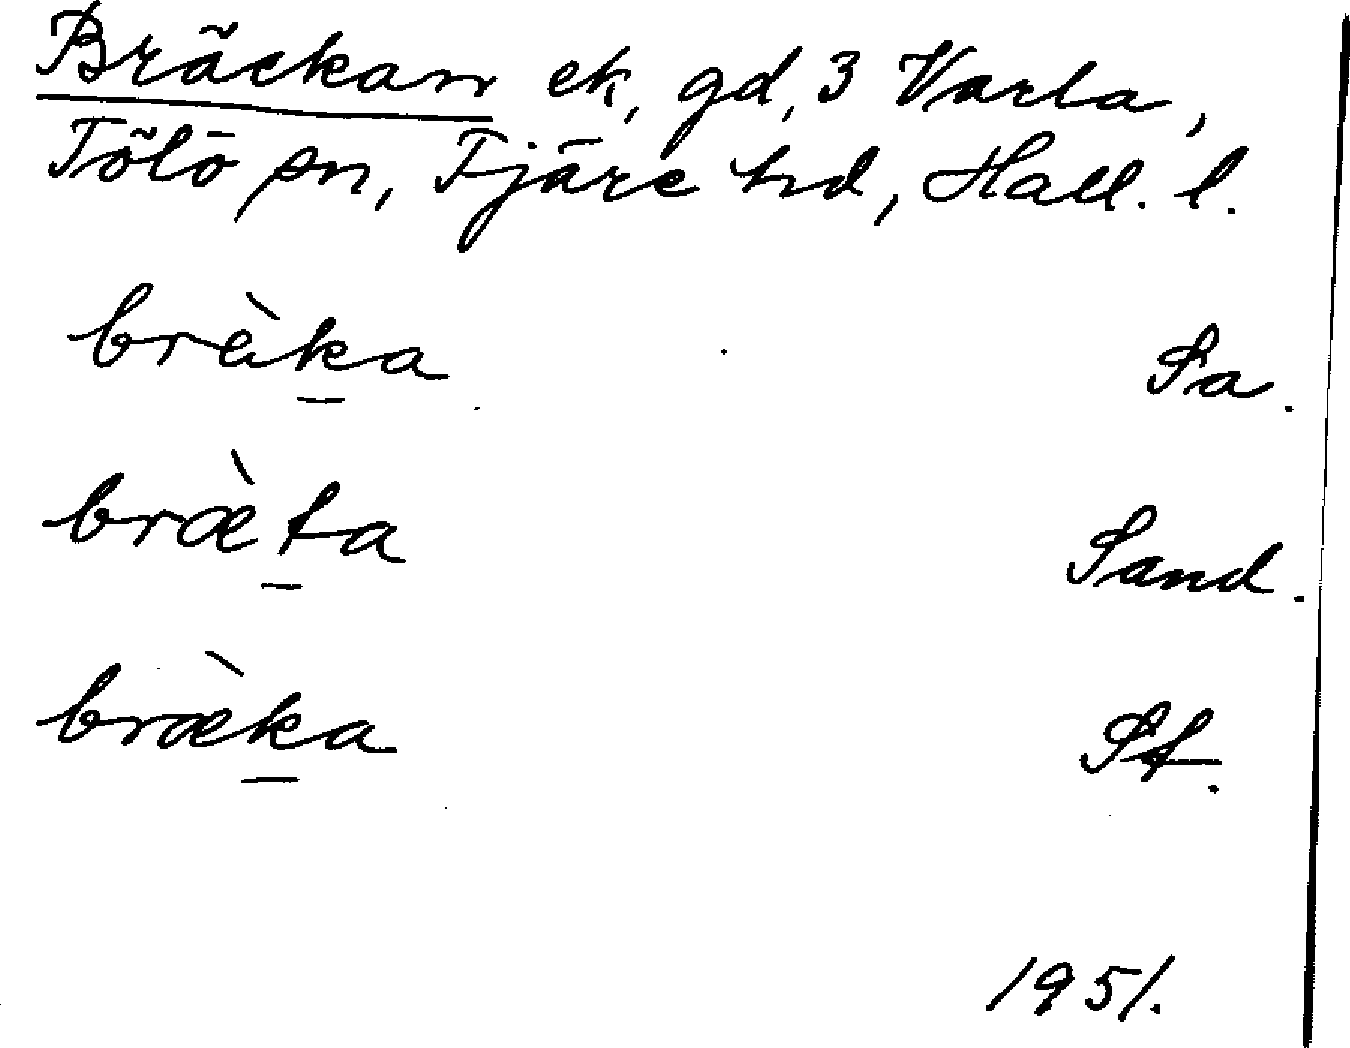 Bräckan ek, gd, 3 Varla,
Tölö sn, Fjäre hd, Hall. l.
brèka Sa.
bræ̀ta Sand.
bræ̀ka St.
1951.